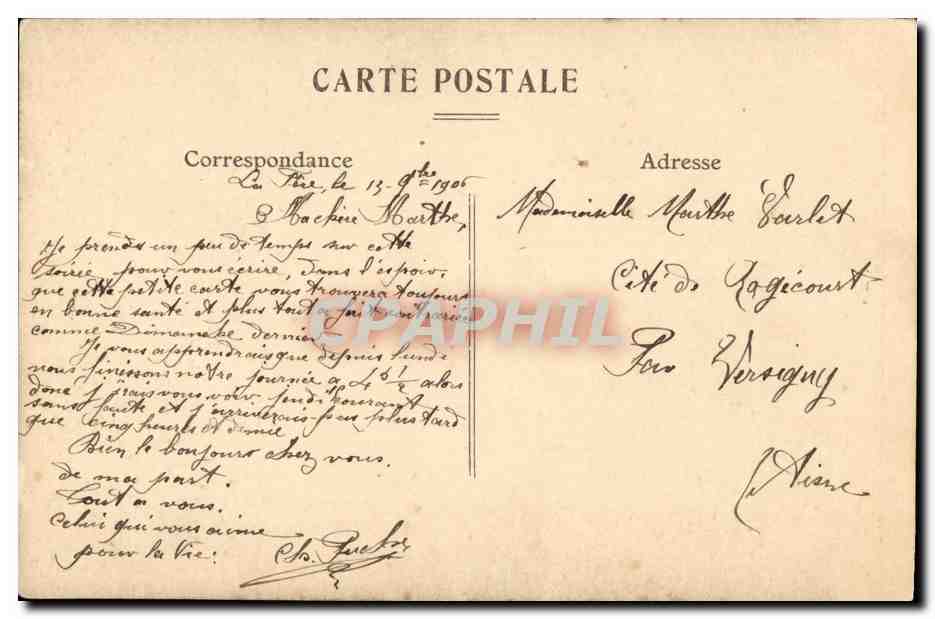 CARTE POSTALE
Correspondance
La Fère, le 13-9bre 1906
Ma chère Marthe,
Je prends un peu de temps sur cette
soirée pour vous écrire, dans l'espoir,
que cette petite carte vous trouvera toujours
en bonne santé et plus tout a fait contrariée
comme Dimanche dernier.
Je vous apprendrais que depuis lundi
nous finissons notre journée a 4h 1/2 alors
donc j'irais vous voir jeudi courant
sans faute et j'arriverais pas plus tard
que cinq heures et demie
Bien le bonjours chez vous.
de ma part.
Tout a vous.
Celui qui vous aime
pour la Vie.
Ch.
Adresse
Mademoiselle Marthe Varlet
Cité de Rogécourt
Par Versigny
Aisne
CPAPHIL